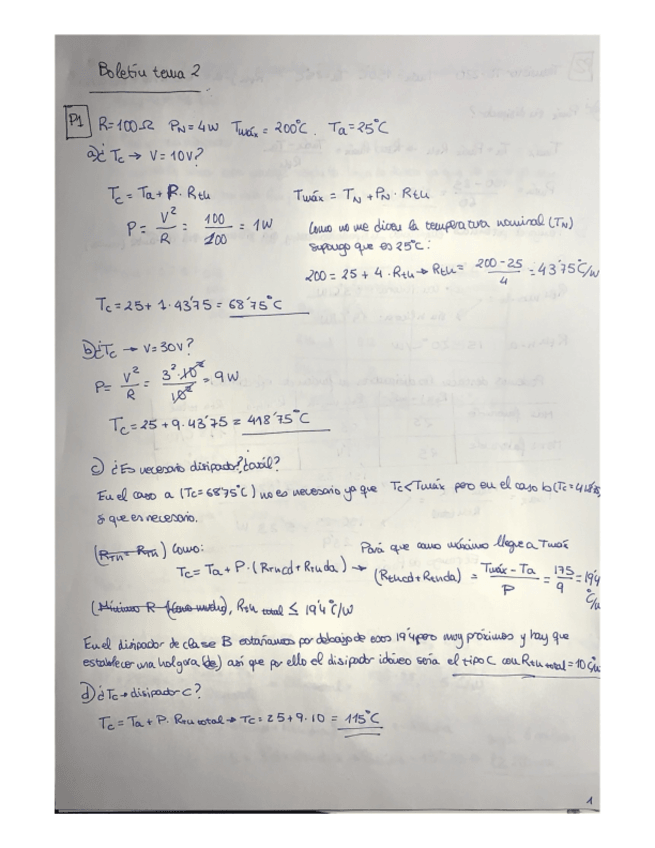 Boletín tema 2
P1 R=100Ω PN=4W Tmáx=200°C. Ta=25°C
a) ¿Tc → V=10V?
Tc = Ta + P. Rth Tmáx = TN + PN · Rth
P = V²/R = 100/100 = 1W Como no me dicen la temperatura nominal (TN)
supongo que es 25°C:
200 = 25 + 4 · Rth → Rth = 200-25/4 = 43'75°C/W
Tc = 25 + 1 · 43'75 = 68'75°C
b) ¿Tc → V=30V?
P = V²/R = 3²·10²/10² = 9W
Tc = 25 + 9 · 43'75 = 418'75°C
c) ¿Es necesario disipador? ¿cuál?
En el caso a (Tc=68'75°C) no es necesario ya que Tc<Tmáx pero en el caso b (Tc=418'75
si que es necesario.
(RTH = RTH) Como: Para que como máximo llegue a Tmáx
Tc = Ta + P · (Rthcd + Rthda) → (Rthcd + Rthda) = Tmáx - Ta/P = 175/9 = 19'4 °C/W
(Mínimo R ), Rth total ≤ 19'4°C/W
En el disipador de clase B estaríamos por debajo de esos 19'4 pero muy próximos y hay que
establecer una holgura así que por ello el disipador idóneo sería el tipo C con Rth total = 10°C/W
d) ¿Tc → disipador C?
Tc = Ta + P · Rth total → Tc = 25 + 9 · 10 = 115°C
1